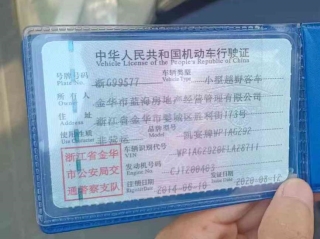 中华人民共和国机动车行驶证
Vehicle License of the People's Republic of China
号牌号码 浙G99577 车辆类型 小型越野客车
Plate No. Vehicle Type
所有人 金华市蓝海房地产经营管理有限公司
Owner
住址 浙江省金华市婺城区胜利街113号
Address
使用性质 非营运 品牌型号 凯宴牌WP1AG292
Use Character Model
浙江省金华
市公安局交
通警察支队
车辆识别代号
VIN
发动机号码
Engine No.
注册日期 2014-06-10 发证日期 2020-08-12
Register Date Issue Date